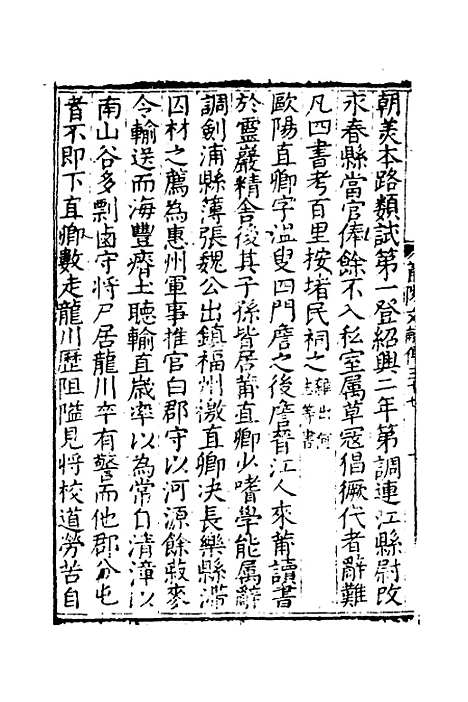 朝美本路類試第一登紹興二年第調連江縣尉改
永春縣當官俸餘不入私室属草冦猖獗代者辭難
凡四書考百里按堵民祠之
歐陽直卿字溫叟四門詹之後詹晉江人來莆讀書
於靈巖精舍後其子孫皆居莆直卿少嗜學能属辭
調劍浦縣簿張魏公出鎮福州檄直卿决長樂縣滞
囚材之薦為惠州軍事推官白郡守以河源餘菽麥
今輸送而海豐瘠土聽輸直歲率以為常白清漳以
南山谷多剽鹵守將尸居龍川卒有警而他郡分屯
者不即下直卿數走龍川歷阻隘見將校道勞苦自
莆陽文獻傳